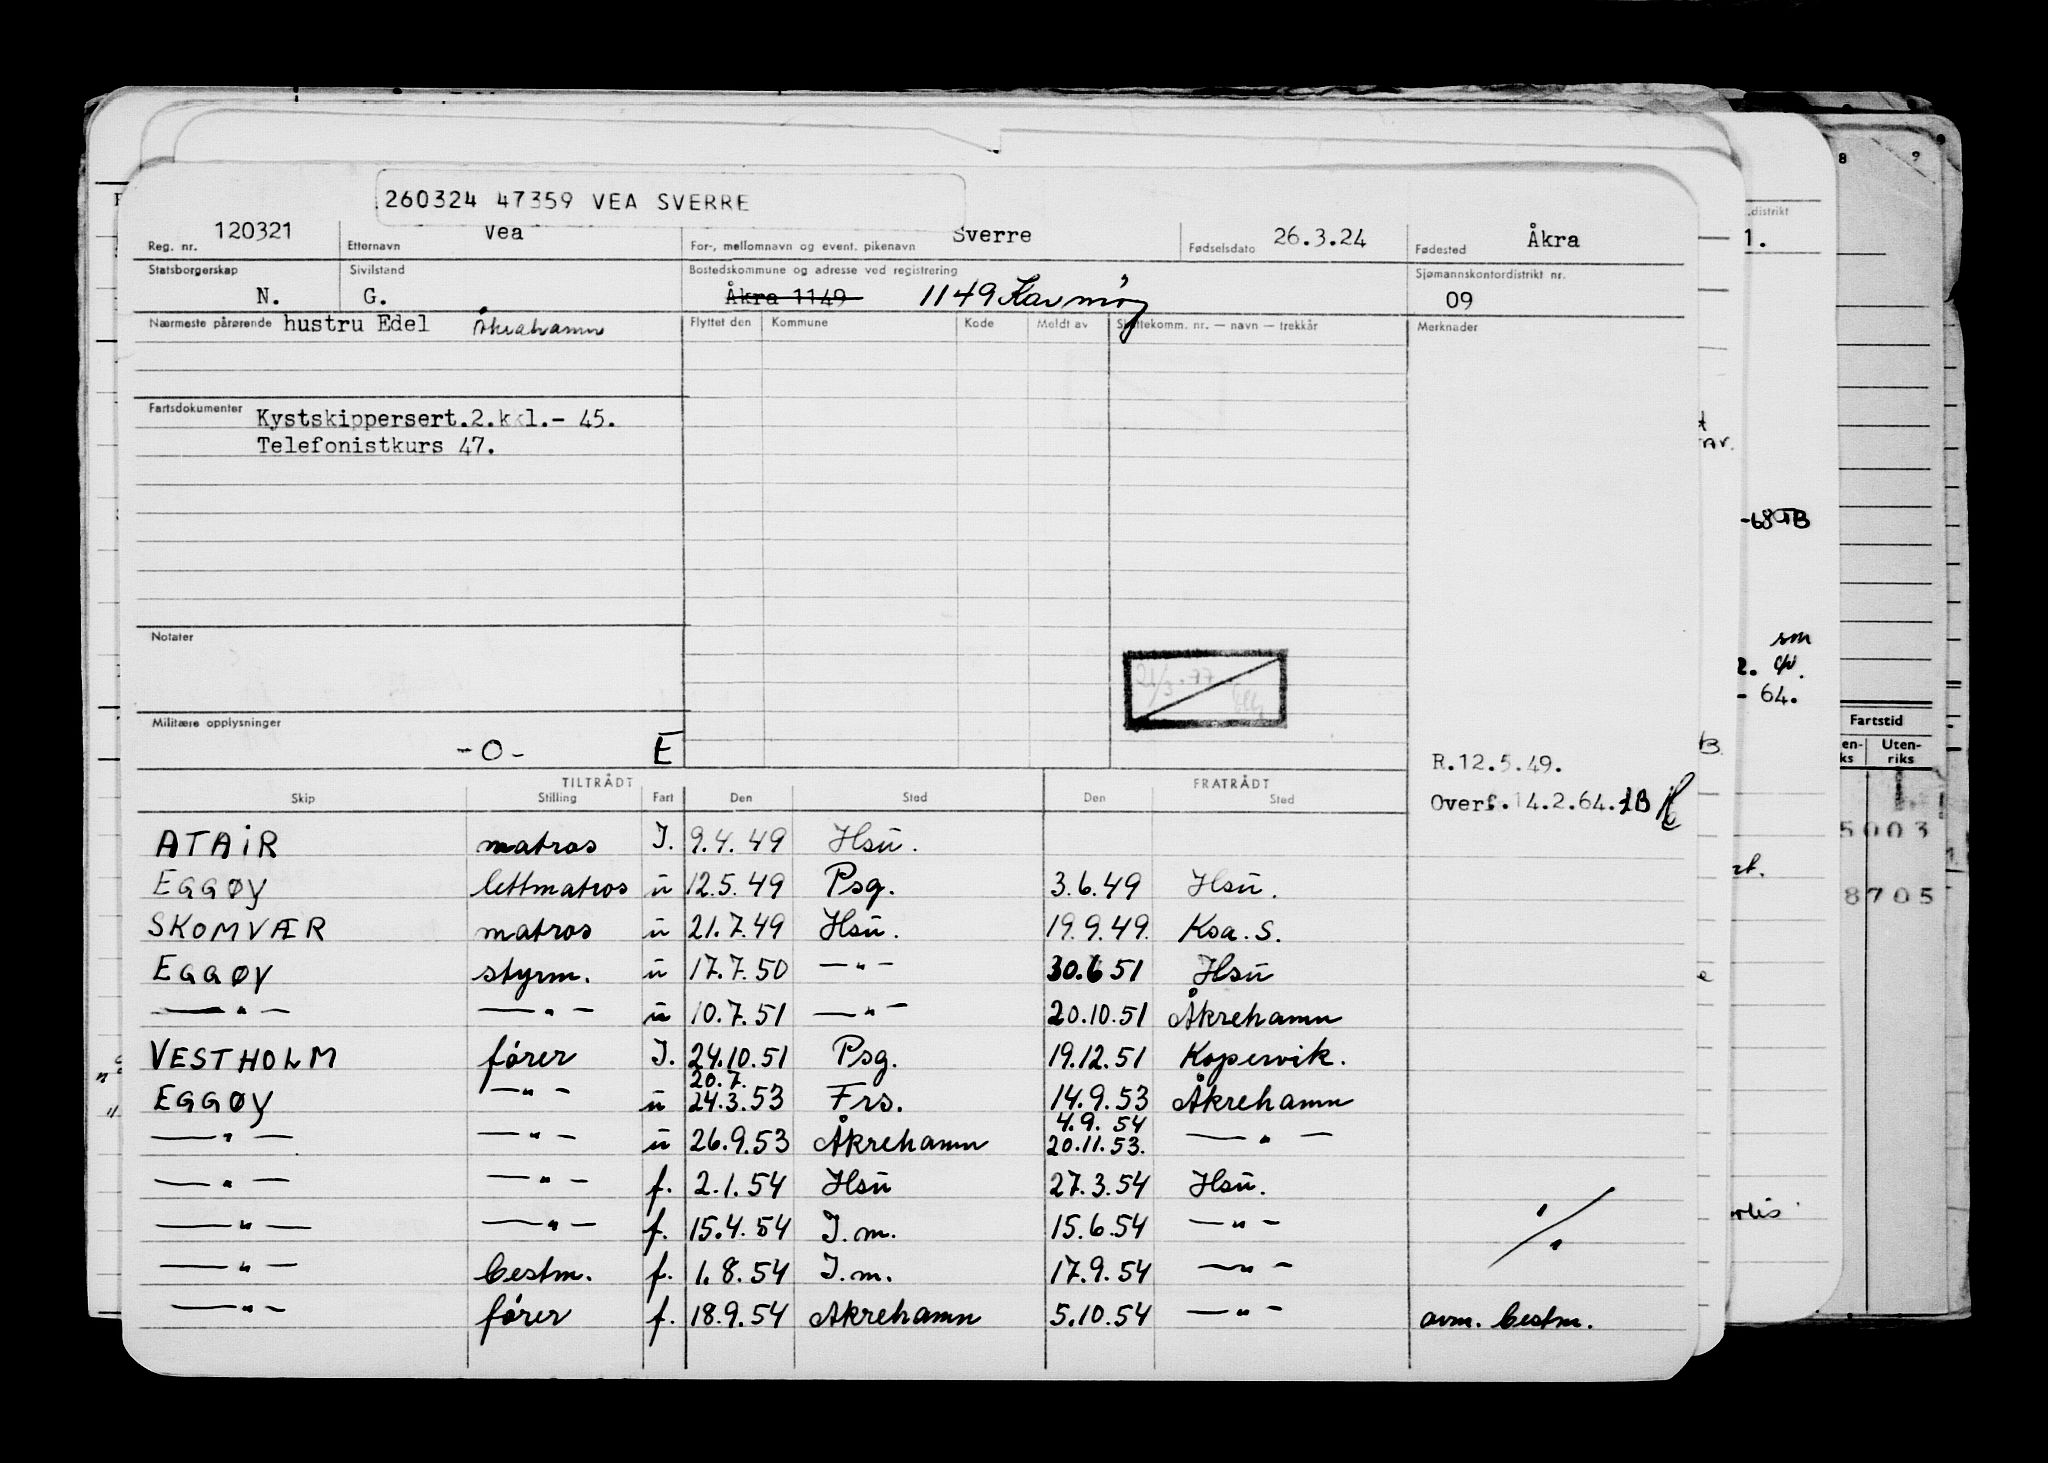 260324 47359 VEA SVERRE
Reg. nr. 120321 Etternavn Vea For-, mellomnavn og event. pikenavn Sverre Fødselsdato 26.3.24 Fødested Åkra
Statsborgerskap Sivilstand Bostedskommune og adresse ved registrering Sjømannskontordistrikt nr.
N. G. Åkra 1149 1149 Karmøy 09
Nærmeste pårørende hustru Edel Åkrahamn Flyttet den Kommune Kode Meldt av Skattekomm. nr. — navn — trekkår Merknader
Fartsdokumenter Kystskippersert.2.kkl.- 45.
Telefonistkurs 47.
Notater
21/3.-77
Militære opplysninger
-0- E
R.12.5.49.
Overf.14.2.64.
TILTRÅDT FRATRÅDT
Skip Stilling Fart Den Sted Den Sted
ATAIR matros I. 9.4.49 Hsu.
EGGØY lettmatros u 12.5.49 Psg. 3.6.49 Hsu.
SKOMVÆR matros u 21.7.49 Hsu. 19.9.49 Ksa.S.
EGGØY styrm. u 17.7.50 —"— 30.6 51 Hsu
—"— —"— u 10.7.51 —"— 20.10.51 Åkrehamn
VESTHOLM fører I. 24.10.51 Psg. 19.12.51 Kopervik.
20.7.
EGGØY —"— u 24.3.53 Frs. 14.9.53 Åkrehamn
4.9. 54
—"— —"— u 26.9.53 Åkrehamn 20.11.53. —"—
—"— —"— f. 2.1.54 Hsu 27.3.54 Hsu.
—"— —"— f. 15.4.54 I.m. 15.6.54 —"—
—"— bestm. f. 1.8.54 I.m. 17.9.54 —"—
—"— fører f. 18.9.54 Åkrehamn 5.10.54 —"— avm. bestm.
8 9
distrikt
1.
-68 TB
sm
2.
- 64.
Fartstid
Uten-
riks
5003
8705